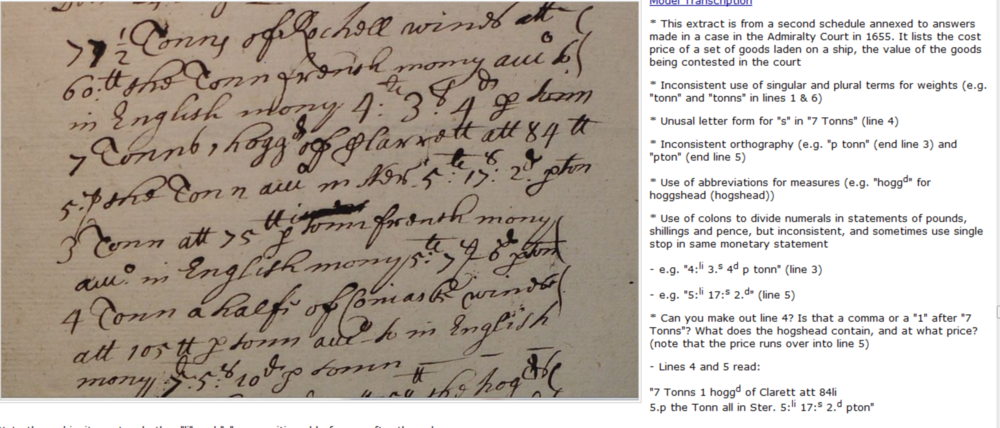 77 1/2 Tonns of Rochell wines att
60:tt the Tonn french mony
in English mony 4:li 3:s 4d p tonn
7 Tonns, hoggd of Clarrett att 84 tt
5:p the Tonn in Ster. 5:li 17:s 2:d pton
3 Tonn att 75 tt p tonn french mony
in English mony 5:li
4 Tonn a halfe of wines
att 105 tt p tonn in English
mony 5:s 10d p tonn
the hog
Model Transcription
* This extract is from a second schedule annexed to answers
made in a case in the Admiralty Court in 1655. It lists the cost
price of a set of goods laden on a ship, the value of the goods
being contested in the court
* Inconsistent use of singular and plural terms for weights (e.g.
"tonn" and "tonns" in lines 1 & 6)
* Unusal letter form for "s" in "7 Tonns" (line 4)
* Inconsistent orthography (e.g. "p tonn" (end line 3) and
"pton" (end line 5)
* Use of abbreviations for measures (e.g. "hoggd" for
hoggshead (hogshead))
* Use of colons to divide numerals in statements of pounds,
shillings and pence, but inconsistent, and sometimes use single
stop in same monetary statement
- e.g. "4:li 3.s 4d p tonn" (line 3)
- e.g. "5:li 17:s 2.d" (line 5)
* Can you make out line 4? Is that a comma or a "1" after "7
Tonns"? What does the hogshead contain, and at what price?
(note that the price runs over into line 5)
- Lines 4 and 5 read:
"7 Tonns 1 hoggd of Clarett att 84li
5.p the Tonn all in Ster. 5:li 17:s 2.d pton"